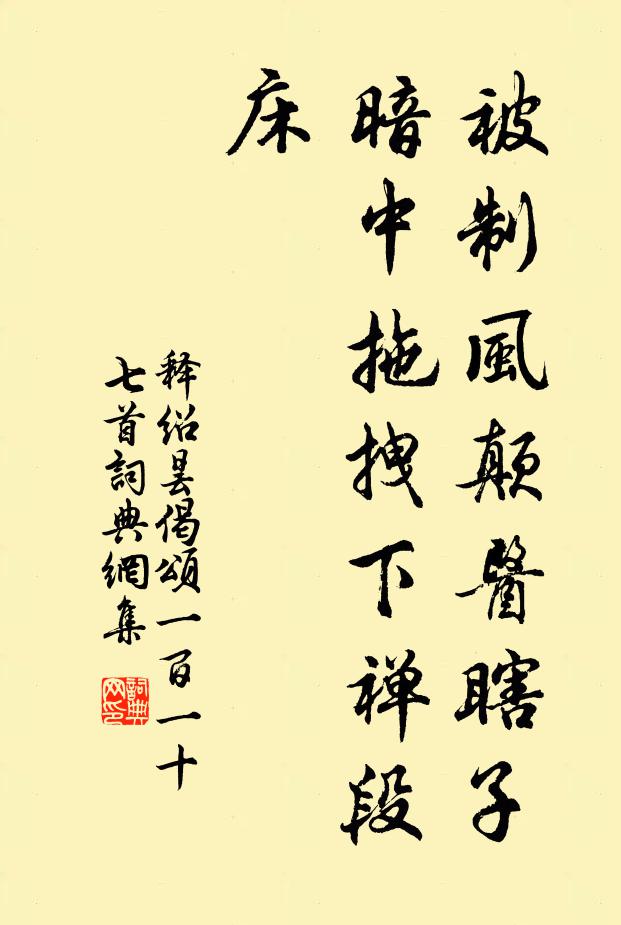 被制風颠醫瞎子
暗中拖拽下禅段
床
释绍昙偈頌一百一十
七首詞典網集
詞典
网印